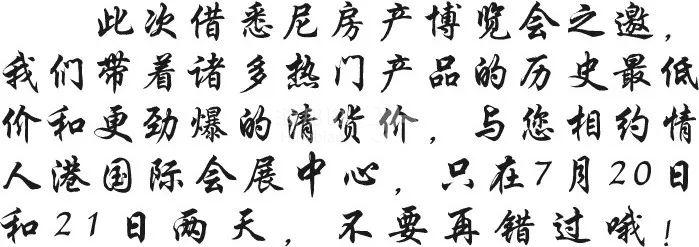 此次借悉尼房产博览会之邀，
我们带着诸多热门产品的历史最低
价和更劲爆的清货价，与您相约情
人港国际会展中心，只在7月20日
和21日两天，不要再错过哦！